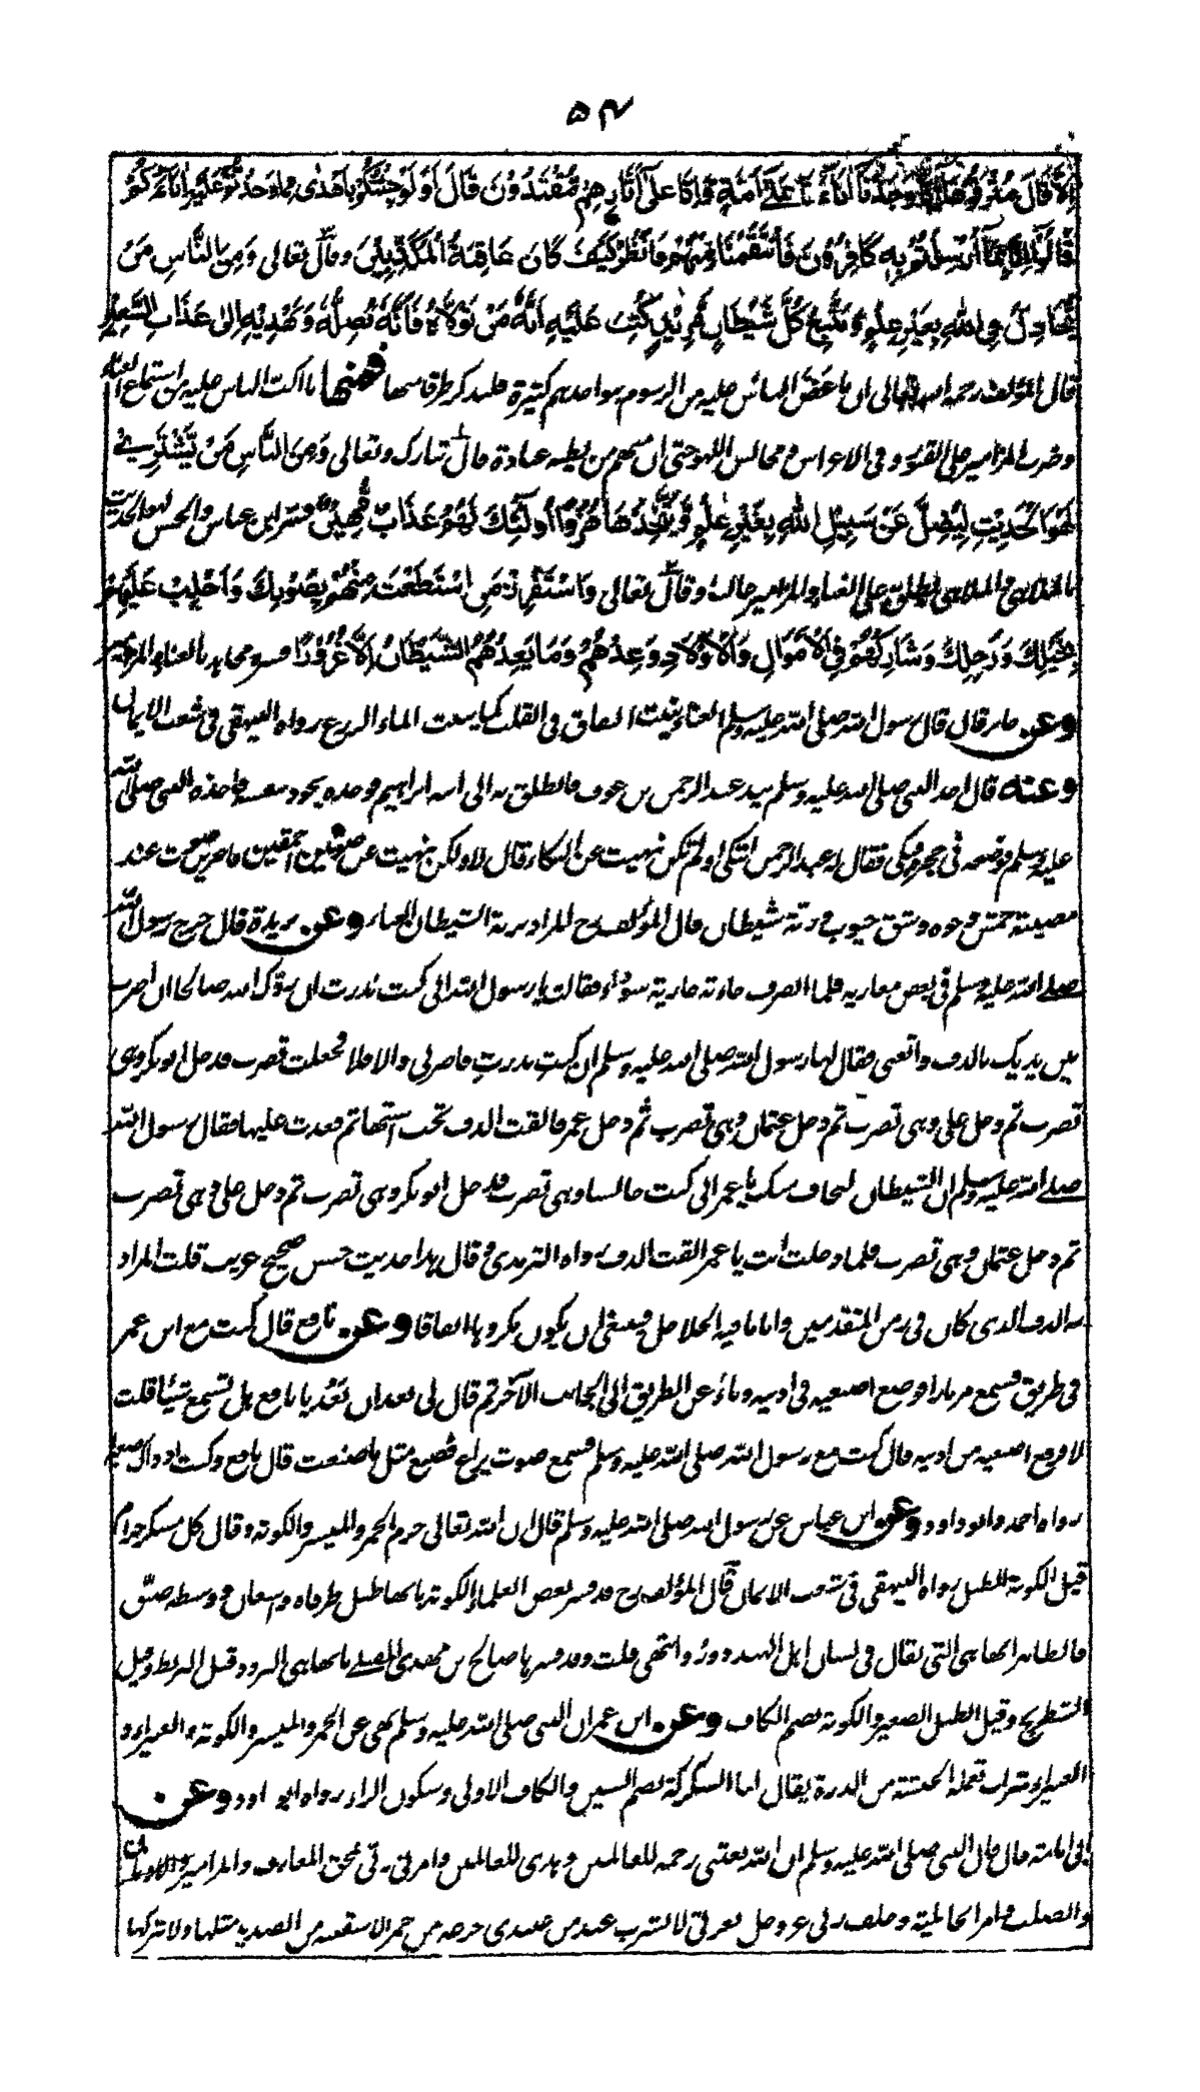 ٥٣
إِلَّا قَالَ مُتْرَفُوهَا إِنَّا وَجَدْنَا آبَاءَنَا عَلَى أُمَّةٍ وَإِنَّا عَلَى آثَارِهِمْ مُقْتَدُوْنَ قَالَ أَوَلَوْ جِئْتُكُمْ بِأَهْدٰى مِمَّا وَجَدْتُّمْ عَلَيْهِ اٰبَاءَكُمْ
قَالُوْا إِنَّا بِمَا أُرْسِلْتُمْ بِهٖ كَافِرُوْنَ فَانْتَقَمْنَا مِنْهُمْ فَانْظُرْ كَيْفَ كَانَ عَاقِبَةُ الْمُكَذِّبِيْنَ وقال تعالى وَمِنَ النَّاسِ مَنْ
يُّجَادِلُ فِي اللّٰهِ بِغَيْرِ عِلْمٍ وَّيَتَّبِعُ كُلَّ شَيْطَانٍ مَّرِيْدٍ كُتِبَ عَلَيْهِ اَنَّهٗ مَنْ تَوَلَّاهُ فَاَنَّهٗ يُضِلُّهٗ وَيَهْدِيْهِ اِلٰى عَذَابِ السَّعِيْرِ
قال المؤلف رحمه الله تعالى ان ما عض الناس عليه من الرسوم بنواجذهم كثيرة فلنذكر طرفا منها فمنها ما اكب الناس عليه من استماع الغناء
وضرب المزامير على القبور وفي الاعراس و مجالس اللهو حتى ان منهم من يظنه عبادة قال تبارك وتعالى وَمِنَ النَّاسِ مَنْ يَّشْتَرِيْ
لَهْوَ الْحَدِيْثِ لِيُضِلَّ عَنْ سَبِيْلِ اللّٰهِ بِغَيْرِ عِلْمٍ وَّيَتَّخِذَهَا هُزُوًا اُولٰئِكَ لَهُمْ عَذَابٌ مُّهِيْنٌ فسر ابن عباس والحسن لهو الحديث
بالملاهي والملاهي يطلق على الغناء والمزامير وقال تعالى وَاسْتَفْزِزْ مَنِ اسْتَطَعْتَ مِنْهُمْ بِصَوْتِكَ وَاَجْلِبْ عَلَيْهِمْ
بِخَيْلِكَ وَرَجِلِكَ وَشَارِكْهُمْ فِي الْاَمْوَالِ وَالْاَوْلَادِ وَعِدْهُمْ وَمَا يَعِدُهُمُ الشَّيْطَانُ اِلَّا غُرُوْرًا فسره مجاهد بالغناء والمزامير
وعن جابر قال قال رسول الله صلى الله عليه وسلم الغناء ينبت النفاق في القلب كما ينبت الماء الزرع رواه البيهقي في شعب الايمان
وعنه قال اخذ النبي صلى الله عليه وسلم بيد عبد الرحمن بن عوف فانطلق به الى ابنه ابراهيم فوجده يجود بنفسه فاخذه النبي صلى الله
عليه وسلم فوضعه في حجره فبكى فقال له عبد الرحمن اتبكي اولم تكن نهيت عن البكاء قال لا ولكن نهيت عن صوتين احمقين فاجرين صوت عند
مصيبة خمش وجوه وشق جيوب ورنة شيطان قال المؤلف رح المراد برنة الشيطان الغناء وعن بريدة قال خرج رسول الله
صلى الله عليه وسلم في بعض مغازيه فلما انصرف جاءته جارية سوداء فقالت يا رسول الله اني كنت نذرت ان ردك الله صالحا ان اضرب
بين يديك بالدف واتغنى فقال لها رسول الله صلى الله عليه وسلم ان كنت نذرت فاضربي والا فلا فجعلت تضرب فدخل ابو بكر وهي
تضرب ثم دخل علي وهي تضرب ثم دخل عثمان وهي تضرب ثم دخل عمر فالقت الدف تحت استها ثم قعدت عليها فقال رسول الله
صلى الله عليه وسلم ان الشيطان ليخاف منك يا عمر اني كنت جالسا وهي تضرب فدخل ابو بكر وهي تضرب ثم دخل علي وهي تضرب
ثم دخل عثمان وهي تضرب فلما دخلت انت يا عمر القت الدف رواه الترمذي وقال هذا حديث حسن صحيح غريب قلت المراد
به الدف الذي كان في زمن المتقدمين واما ما فيه الجلاجل فينبغي ان يكون مكروها اتفاقا وعن نافع قال كنت مع ابن عمر
في طريق فسمع مزمارا فوضع اصبعيه في اذنيه وناء عن الطريق الى الجانب الآخر ثم قال لي بعد ان بَعُدَ يا نافع هل تسمع شيئا قلت
لا فرفع اصبعيه من اذنيه قال كنت مع رسول الله صلى الله عليه وسلم فسمع صوت يراع فصنع مثل ما صنعت قال نافع وكنت اذ ذاك صغيرا
رواه احمد وابو داود وعن ابن عباس عن رسول الله صلى الله عليه وسلم قال ان الله تعالى حرم الخمر والميسر والكوبة وقال كل مسكر حرام
قيل الكوبة الطبل رواه البيهقي في شعب الايمان قال المؤلف رح قد فسر بعض العلماء الكوبة بانها طبل طرفاه واسعان ووسطه ضيق
فالظاهر انها هي التي يقال في لسان اهل الهند دورو انتهى قلت وقد فسرها صالح بن مهدي المقبلي بانها هي النرد وقيل البربط وقيل
الشطرنج وقيل الطبل الصغير والكوبة بضم الكاف وعن ابن عمر ان النبي صلى الله عليه وسلم نهى عن الخمر والميسر والكوبة والغبيراء و
الغبيراء شراب تعمله الحبشة من الذرة يقال لها السكركة بضم السين والكاف الاولى وسكون الراء رواه ابو داود وعن
ابي امامة قال قال النبي صلى الله عليه وسلم ان الله بعثني رحمة للعالمين وهدى للعالمين وامرني ربي بمحق المعازف والمزامير والاوثان
والصلب وامر الجاهلية وحلف ربي عز وجل بعزتي لا يشرب عبد من عبيدي جرعة من خمر الا سقيته من الصديد مثلها ولا يتركها